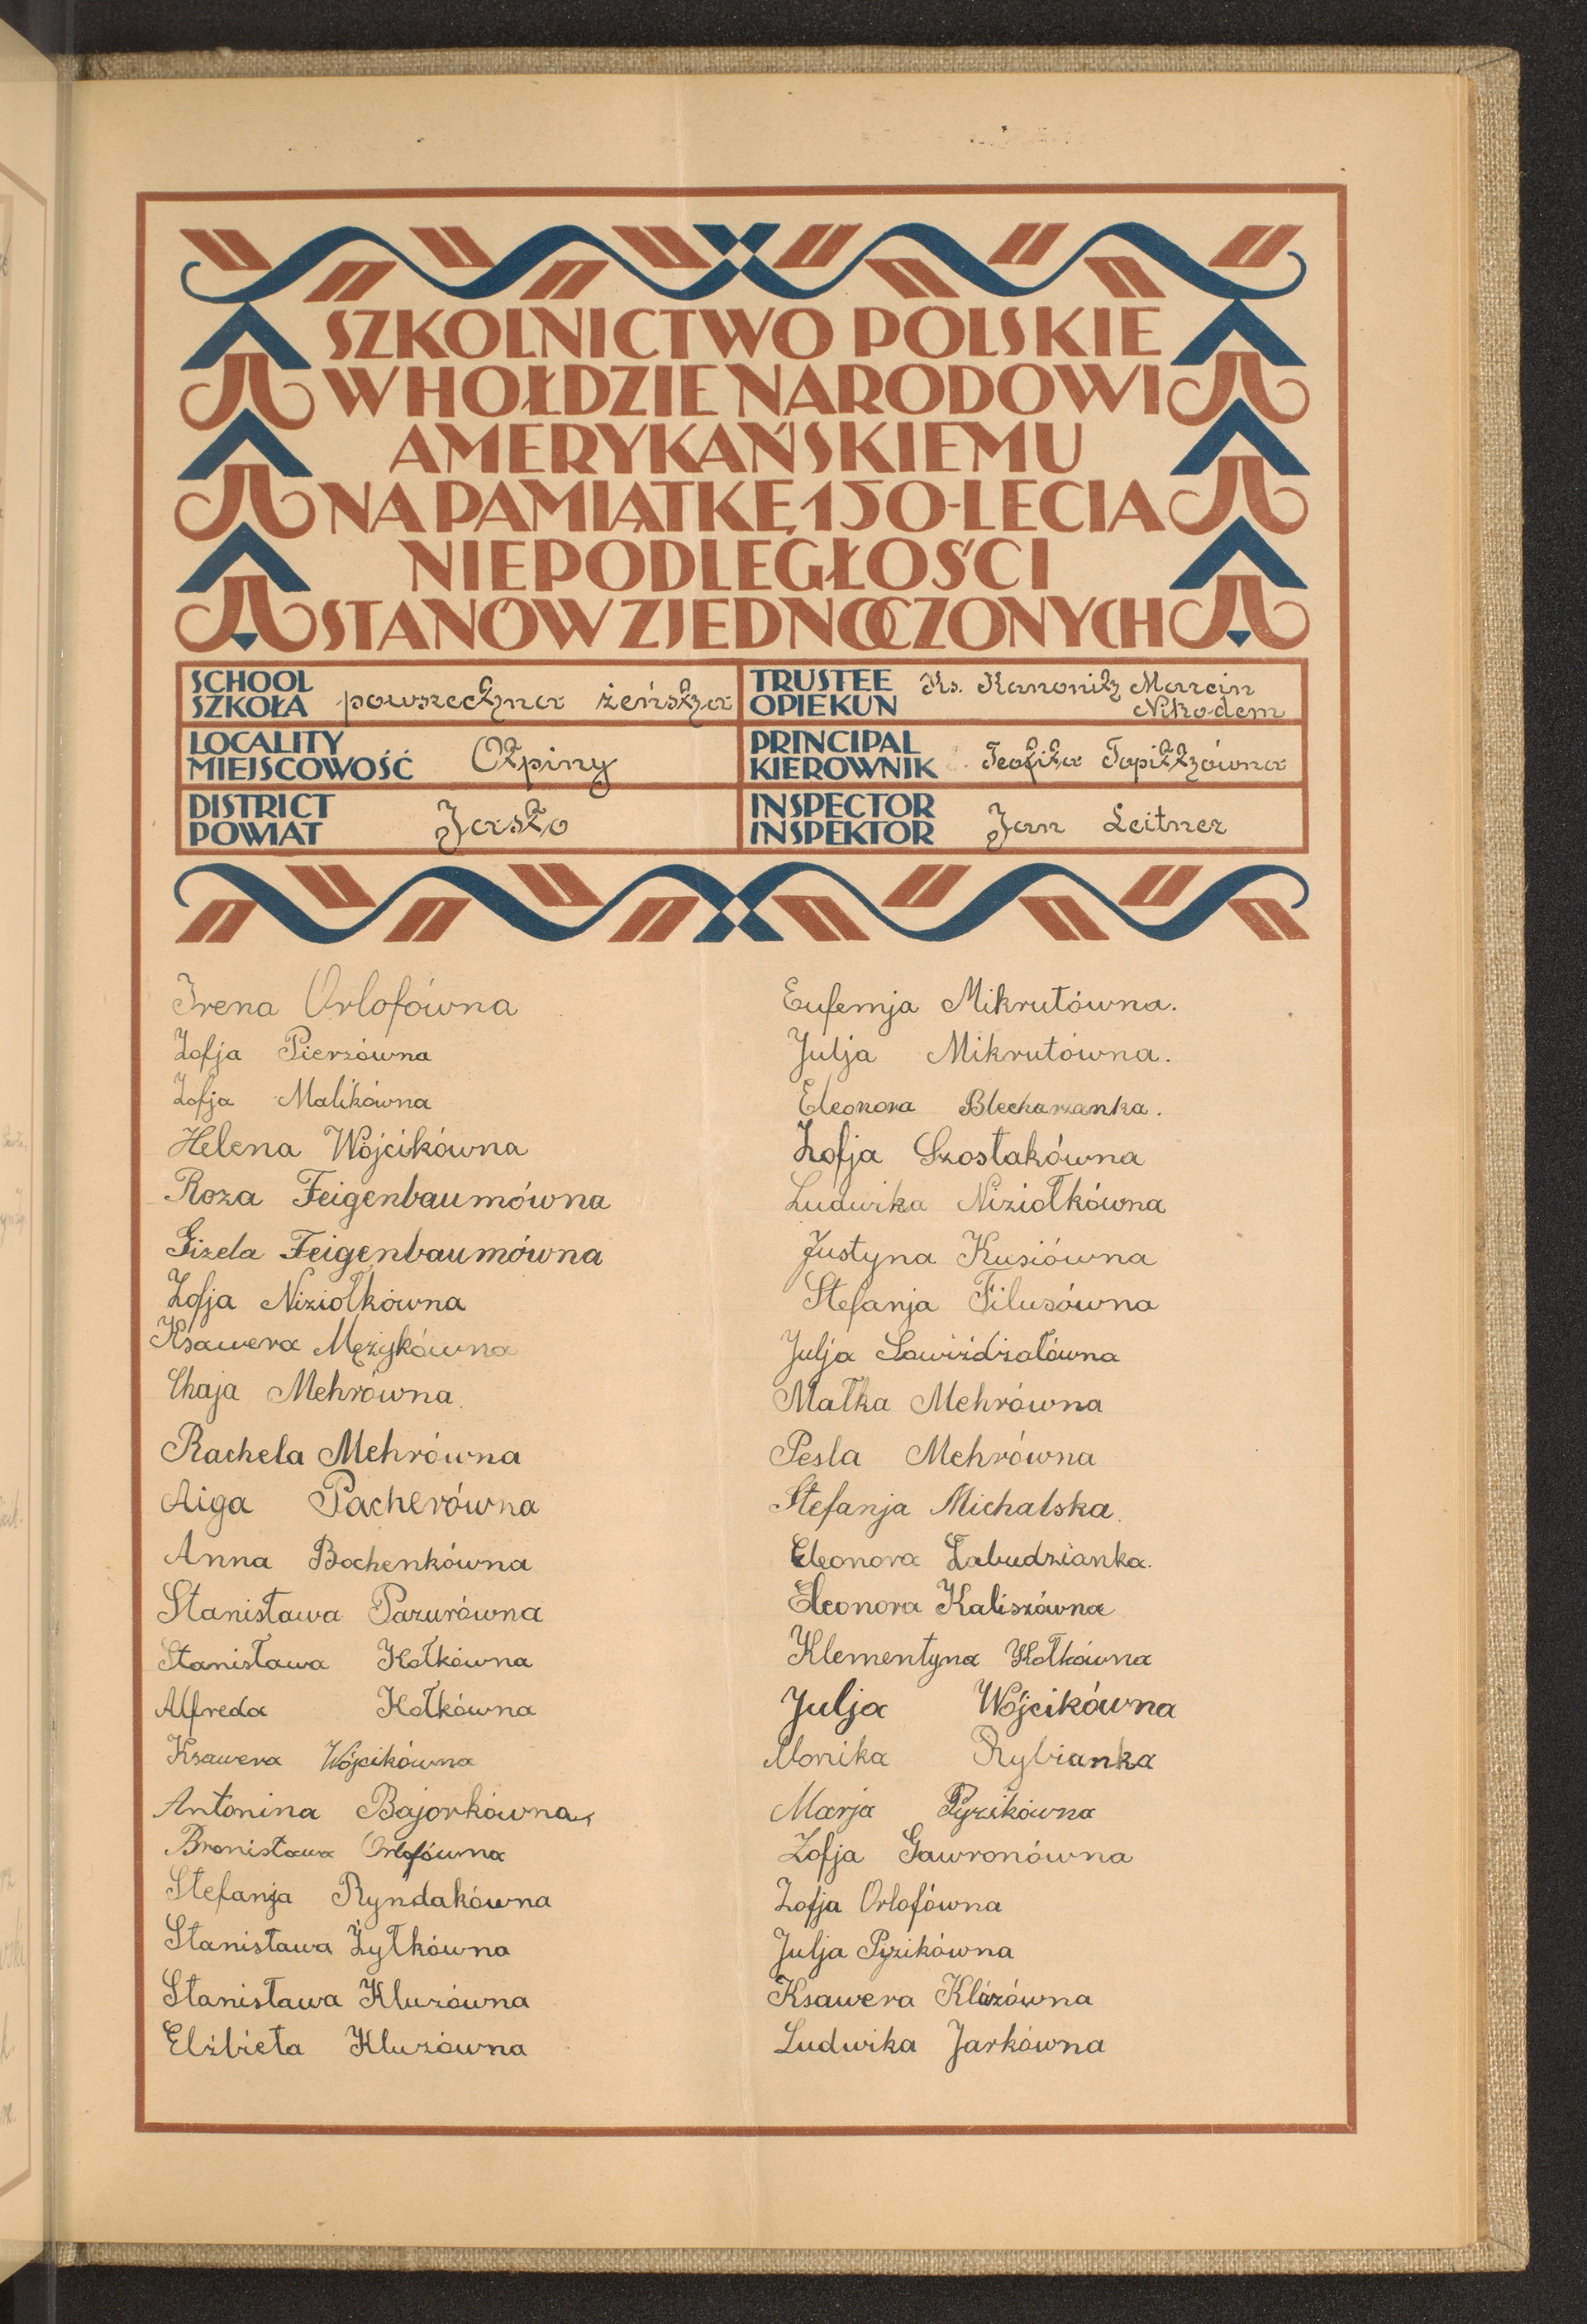 SZKOLNICTWO POLSKIE
W HOŁDZIE NARODOWI
AMERYKAŃSKIEMU
NA PAMIĄTKĘ 150-LECIA
NIEPODLEGŁOŚCI
STANÓW ZJEDNOCZONYCH
SCHOOL
SZKOŁA powszechna żeńska
TRUSTEE
OPIEKUN Ks. Kanonik Marcin
Nikodem
LOCALITY
MIEJSCOWOŚĆ Ołpiny
PRINCIPAL
KIEROWNIK Teofila
DISTRICT
POWIAT Jasło
INSPECTOR
INSPEKTOR Jan Leitner
Irena Orlofówna
Zofja Pierzówna
Zofja Malikówna
Helena Wójcikówna
Roza Feigenbaumówna
Gizela Feigenbaumówna
Zofja Niziołkówna
Ksawera Mężykówna
Chaja Mehrówna
Rachela Mehrówna
Aiga Pacherówna
Anna Bochenkówna
Stanisława Pazurówna
Stanisława Kołkówna
Alfreda Kołkówna
Ksawera Wójcikówna
Antonina Bajorkówna
Bronisława Orlofówna
Stefanja Ryndakówna
Stanisława Żyłkówna
Stanisława Kluzówna
Elżbieta Kluzówna
Eufemja Mikrutówna.
Julja Mikrutówna.
Eleonora Blecharzanka.
Zofja Szostakówna
Ludwika Niziołkówna
Justyna Kusiówna
Stefanja Filusówna
Julja Sowiździałówna
Małka Mehrówna
Pesla Mehrówna
Stefanja Michalska
Eleonora Łabudzianka.
Eleonora Kaliszówna
Klementyna Kołkówna
Julja Wójcikówna
Monika Rybianka
Marja Pyzikówna
Zofja Gawronówna
Zofja Orlofówna
Julja Pyzikówna
Ksawera Kluzówna
Ludwika Jarkówna